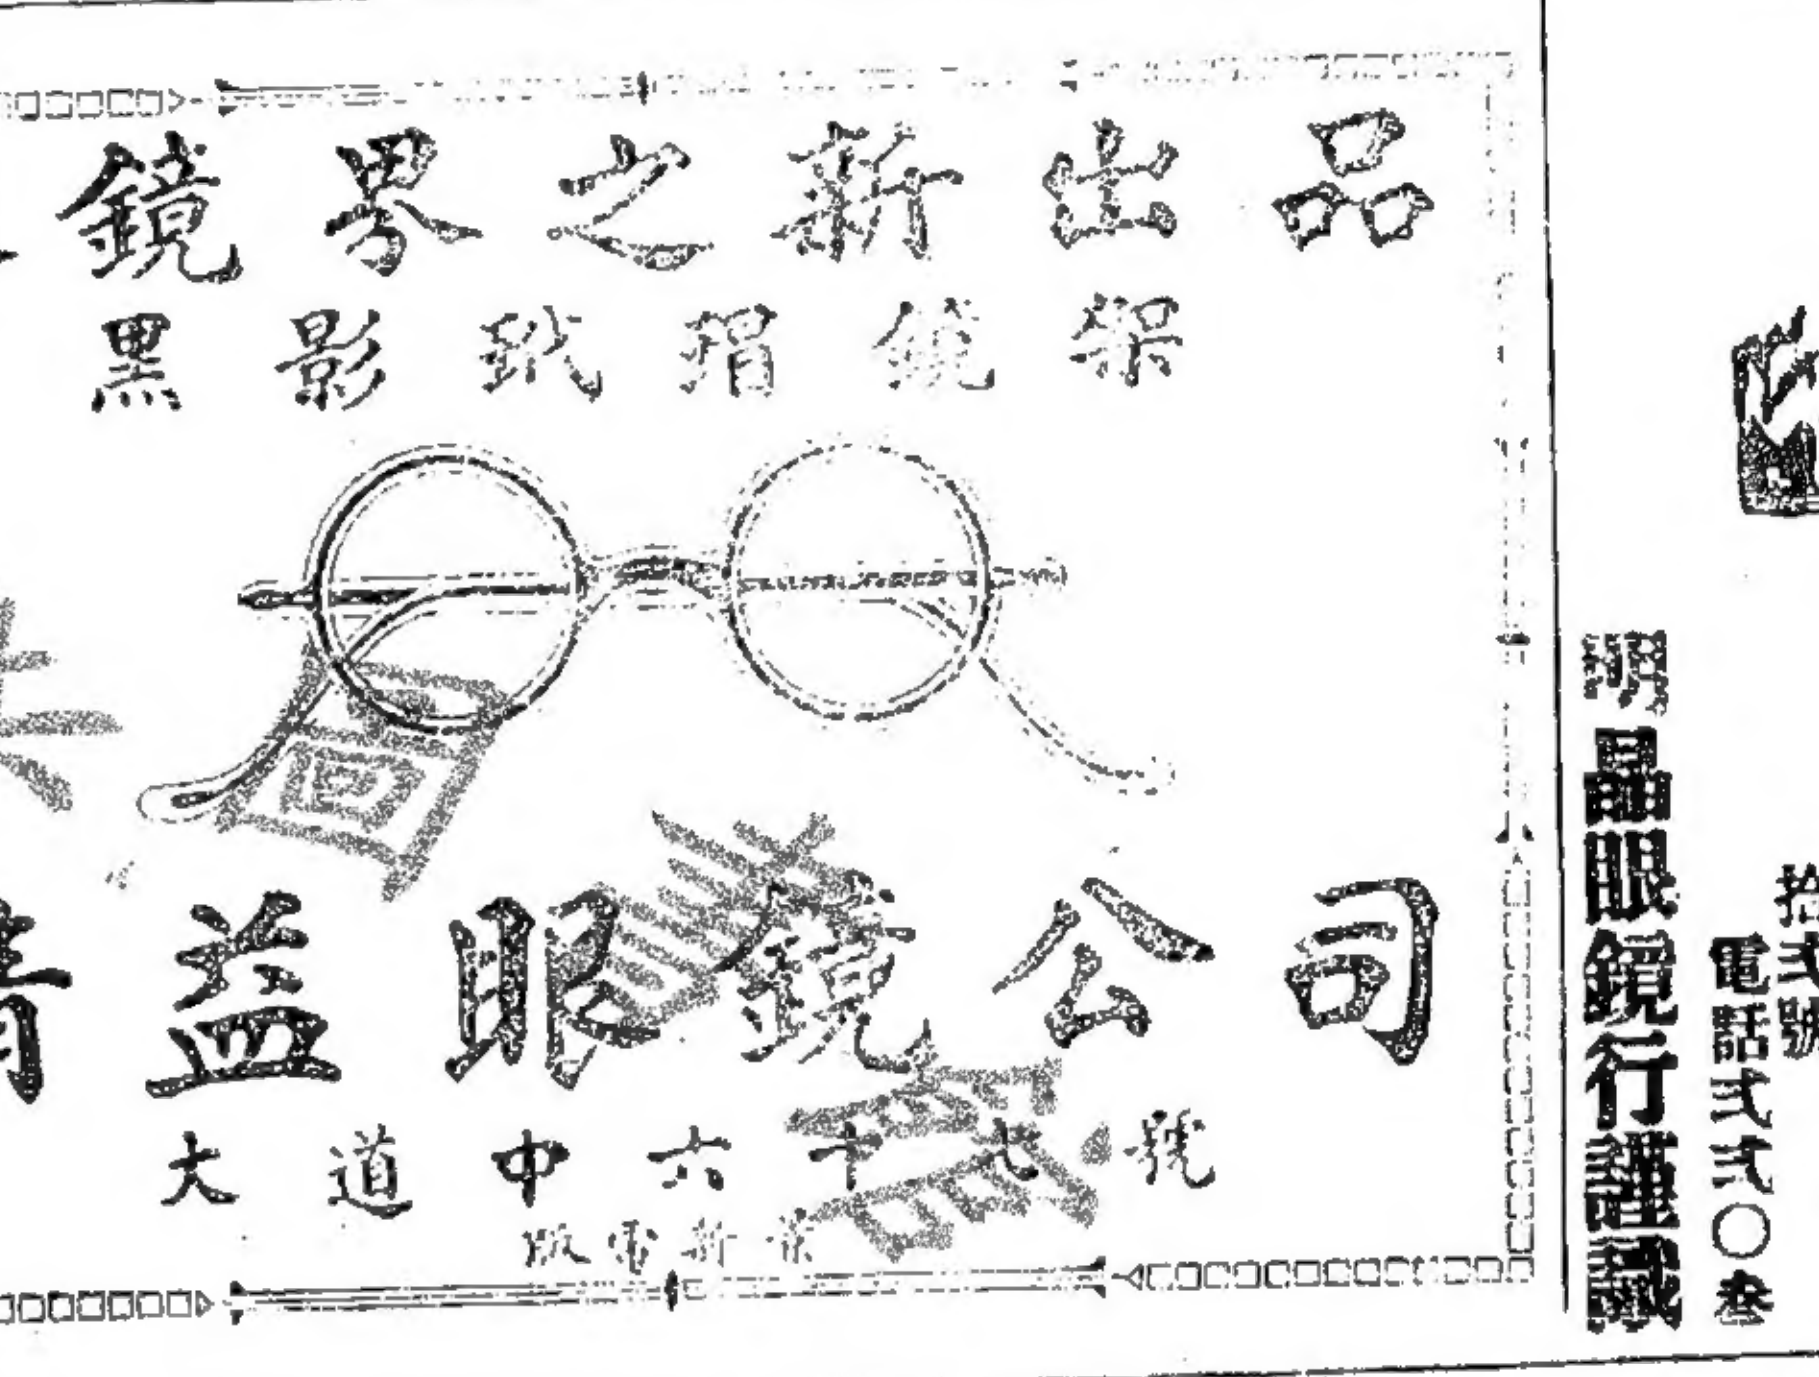 鏡界之新出品
黑影玳瑁鏡架
益眼鏡公司
大道中六十七號
明晶眼鏡行謹識
拾弍號
電話弍弍〇叁